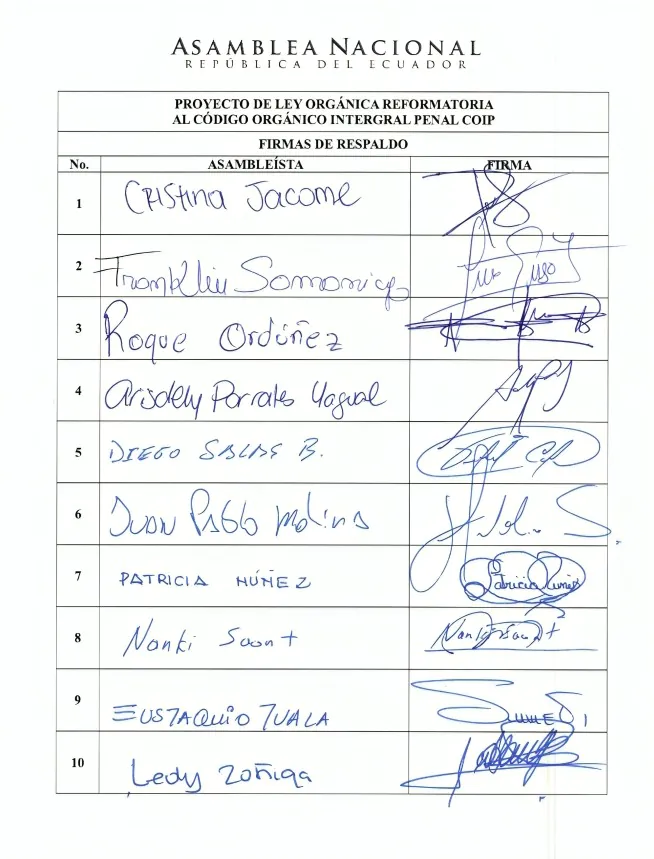 ASAMBLEA NACIONAL
REPÚBLICA DEL ECUADOR
PROYECTO DE LEY ORGÁNICA REFORMATORIA
AL CÓDIGO ORGÁNICO INTERGRAL PENAL COIP
FIRMAS DE RESPALDO
No. ASAMBLEÍSTA FIRMA
1 CRIStina Jacome
2 Franklin Samaniego
3 Roque Ordóñez
4 Arisdely Parrales Yagual
5 DIEGO SALAS B.
6 JUAN PABlo Molina
7 PATRICIA NÚÑEZ Patricia Núñez
8 Nanki Saant Nanki Saant
9 EUSTAQUIO TUALA
10 Ledy Zúñiga